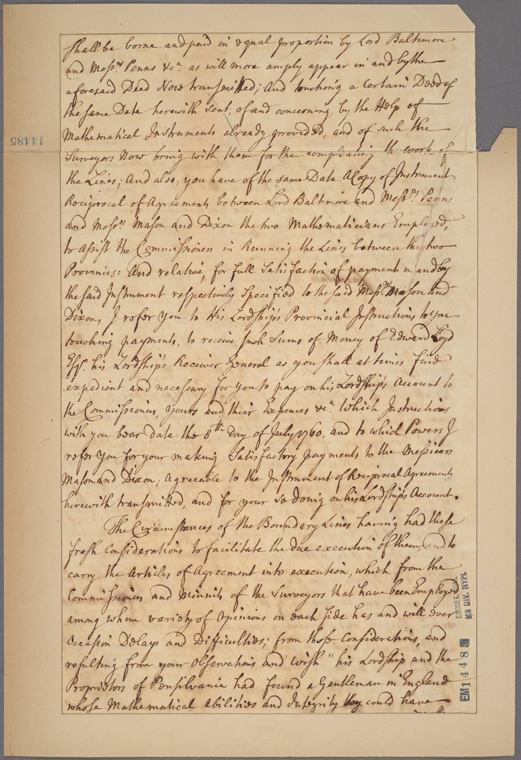 shall be borne and paid in equal proportion by Lord Baltimore
and Mess.rs Penns &c.a as will more amply appear in and by the
aforesaid Deed Now transmitted; And touching a Certain Deed of
the same Date herewith Sent, of and concerning, by the Help of
Mathematical Instruments already provided, and of such the
Surveyors Now bring with them for the compleating the work of
the Lines; And also, you have of the same Date a Copy of Instrument
Reciprocal of Agreements between Lord Baltimore and Mess.rs Penns
and Mess.rs Mason and Dixon the two Mathematicians Employed,
to assist the Commissioners in Running the Lines between the two
Provinces: And relative, for full Satisfaction of payment in and by
the said Instrument respectively Specified to the said Mess.rs Mason and
Dixon, I refer you to His Lordship's Provincial Instructions to you
touching payments, to receive such Sums of Money of Edward Loyd
Esq.r his Lordship's Receiver General as you shall at times find
expedient and necessary for you to pay on his Lordship's Account to
the Commissioners yours and their Expences &c.a Which Instructions
with you bear date the 8.th Day of July 1760, and to which Powers I
refer You for your making Satisfactory payments to the Messieurs
Mason and Dixon, agreeable to the Instrument of Reciprocal Agreements
herewith transmitted, and for your so doing on his Lordship's Account.
The Circumstances of the Boundary Lines having had these
fresh Considerations to facilitate the due execution of them, and to
carry the Articles of Agreement into execution, which from the
Commissioners and Minuits of the Surveyors that have been Employ'd
among whom variety of Opinions on each side has and will ever
Occasion Delays and Difficulties; from those Considerations, and
resulting from your Observations and Wish " his Lordship and the
Proprietors of Pensilvania had found a Gentleman in England
whose Mathematical Abilities and Integrity they could have
14485
EMMET COL.
MS DIV. NYPL
EM14485